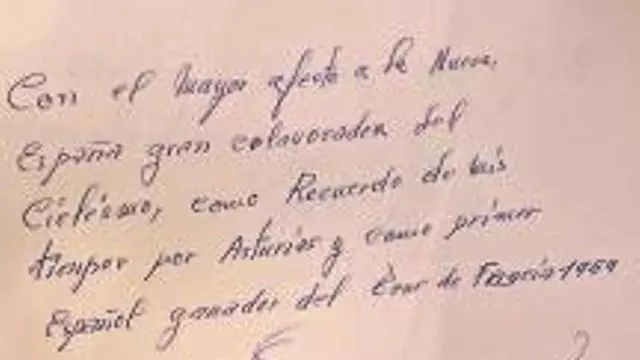 Con el mayor afecto a la Nueva
España gran colavorador del
Ciclismo, como Recuerdo de mis
tiempos por Asturias y como primer
Español ganador del Tour de Francia 1959